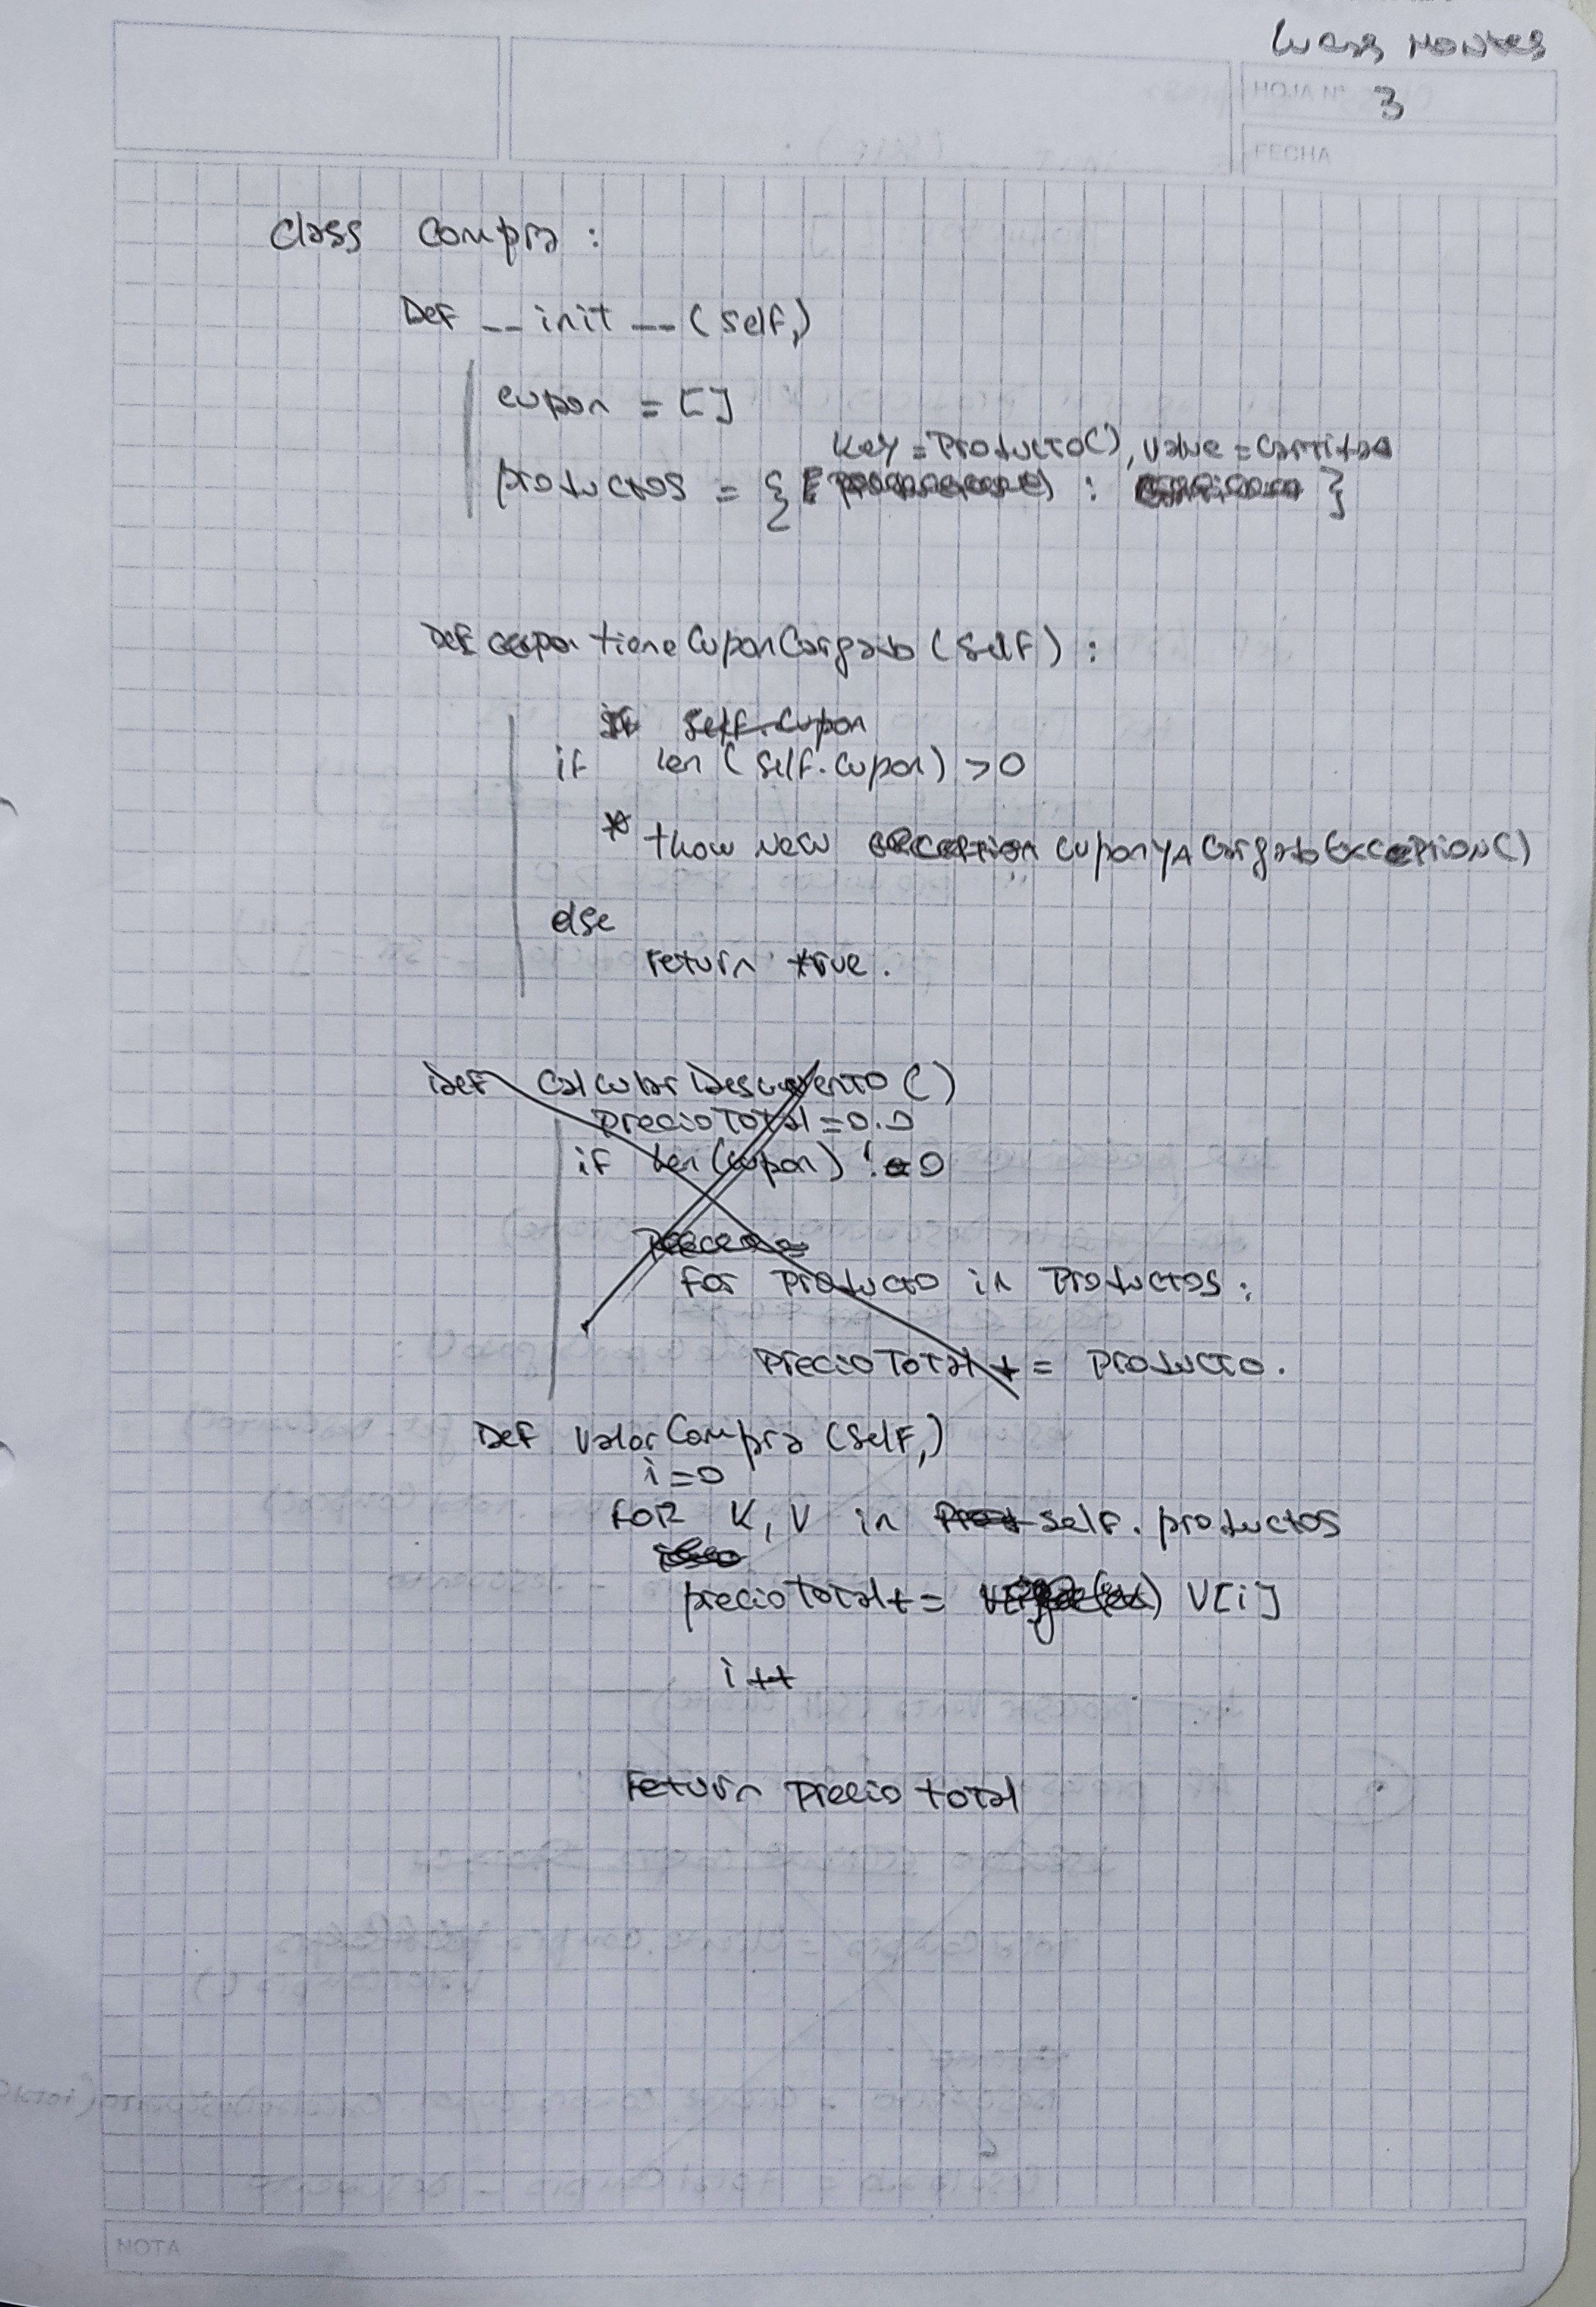 Lucas Montes
HOJA N° 3
FECHA
Class Compra :
Def __init__(self,)
cupon = []
Key = Producto(), Value = Cantidad
productos = { : }
Def tieneCuponCargado (self) :
if self.cupon
if len (self.cupon) >0
* thow new exception cuponYACargadoException()
else
return true.
Def CalcularDescuento ()
precioTotal = 0.0
if len (cupon) != 0
for Producto in Productos :
precioTotal += Producto.
Def ValorCompra (self,)
i=0
FOR K, V in Prod self. productos
precioTotal+= V[i]
i++
return Precio total
NOTA